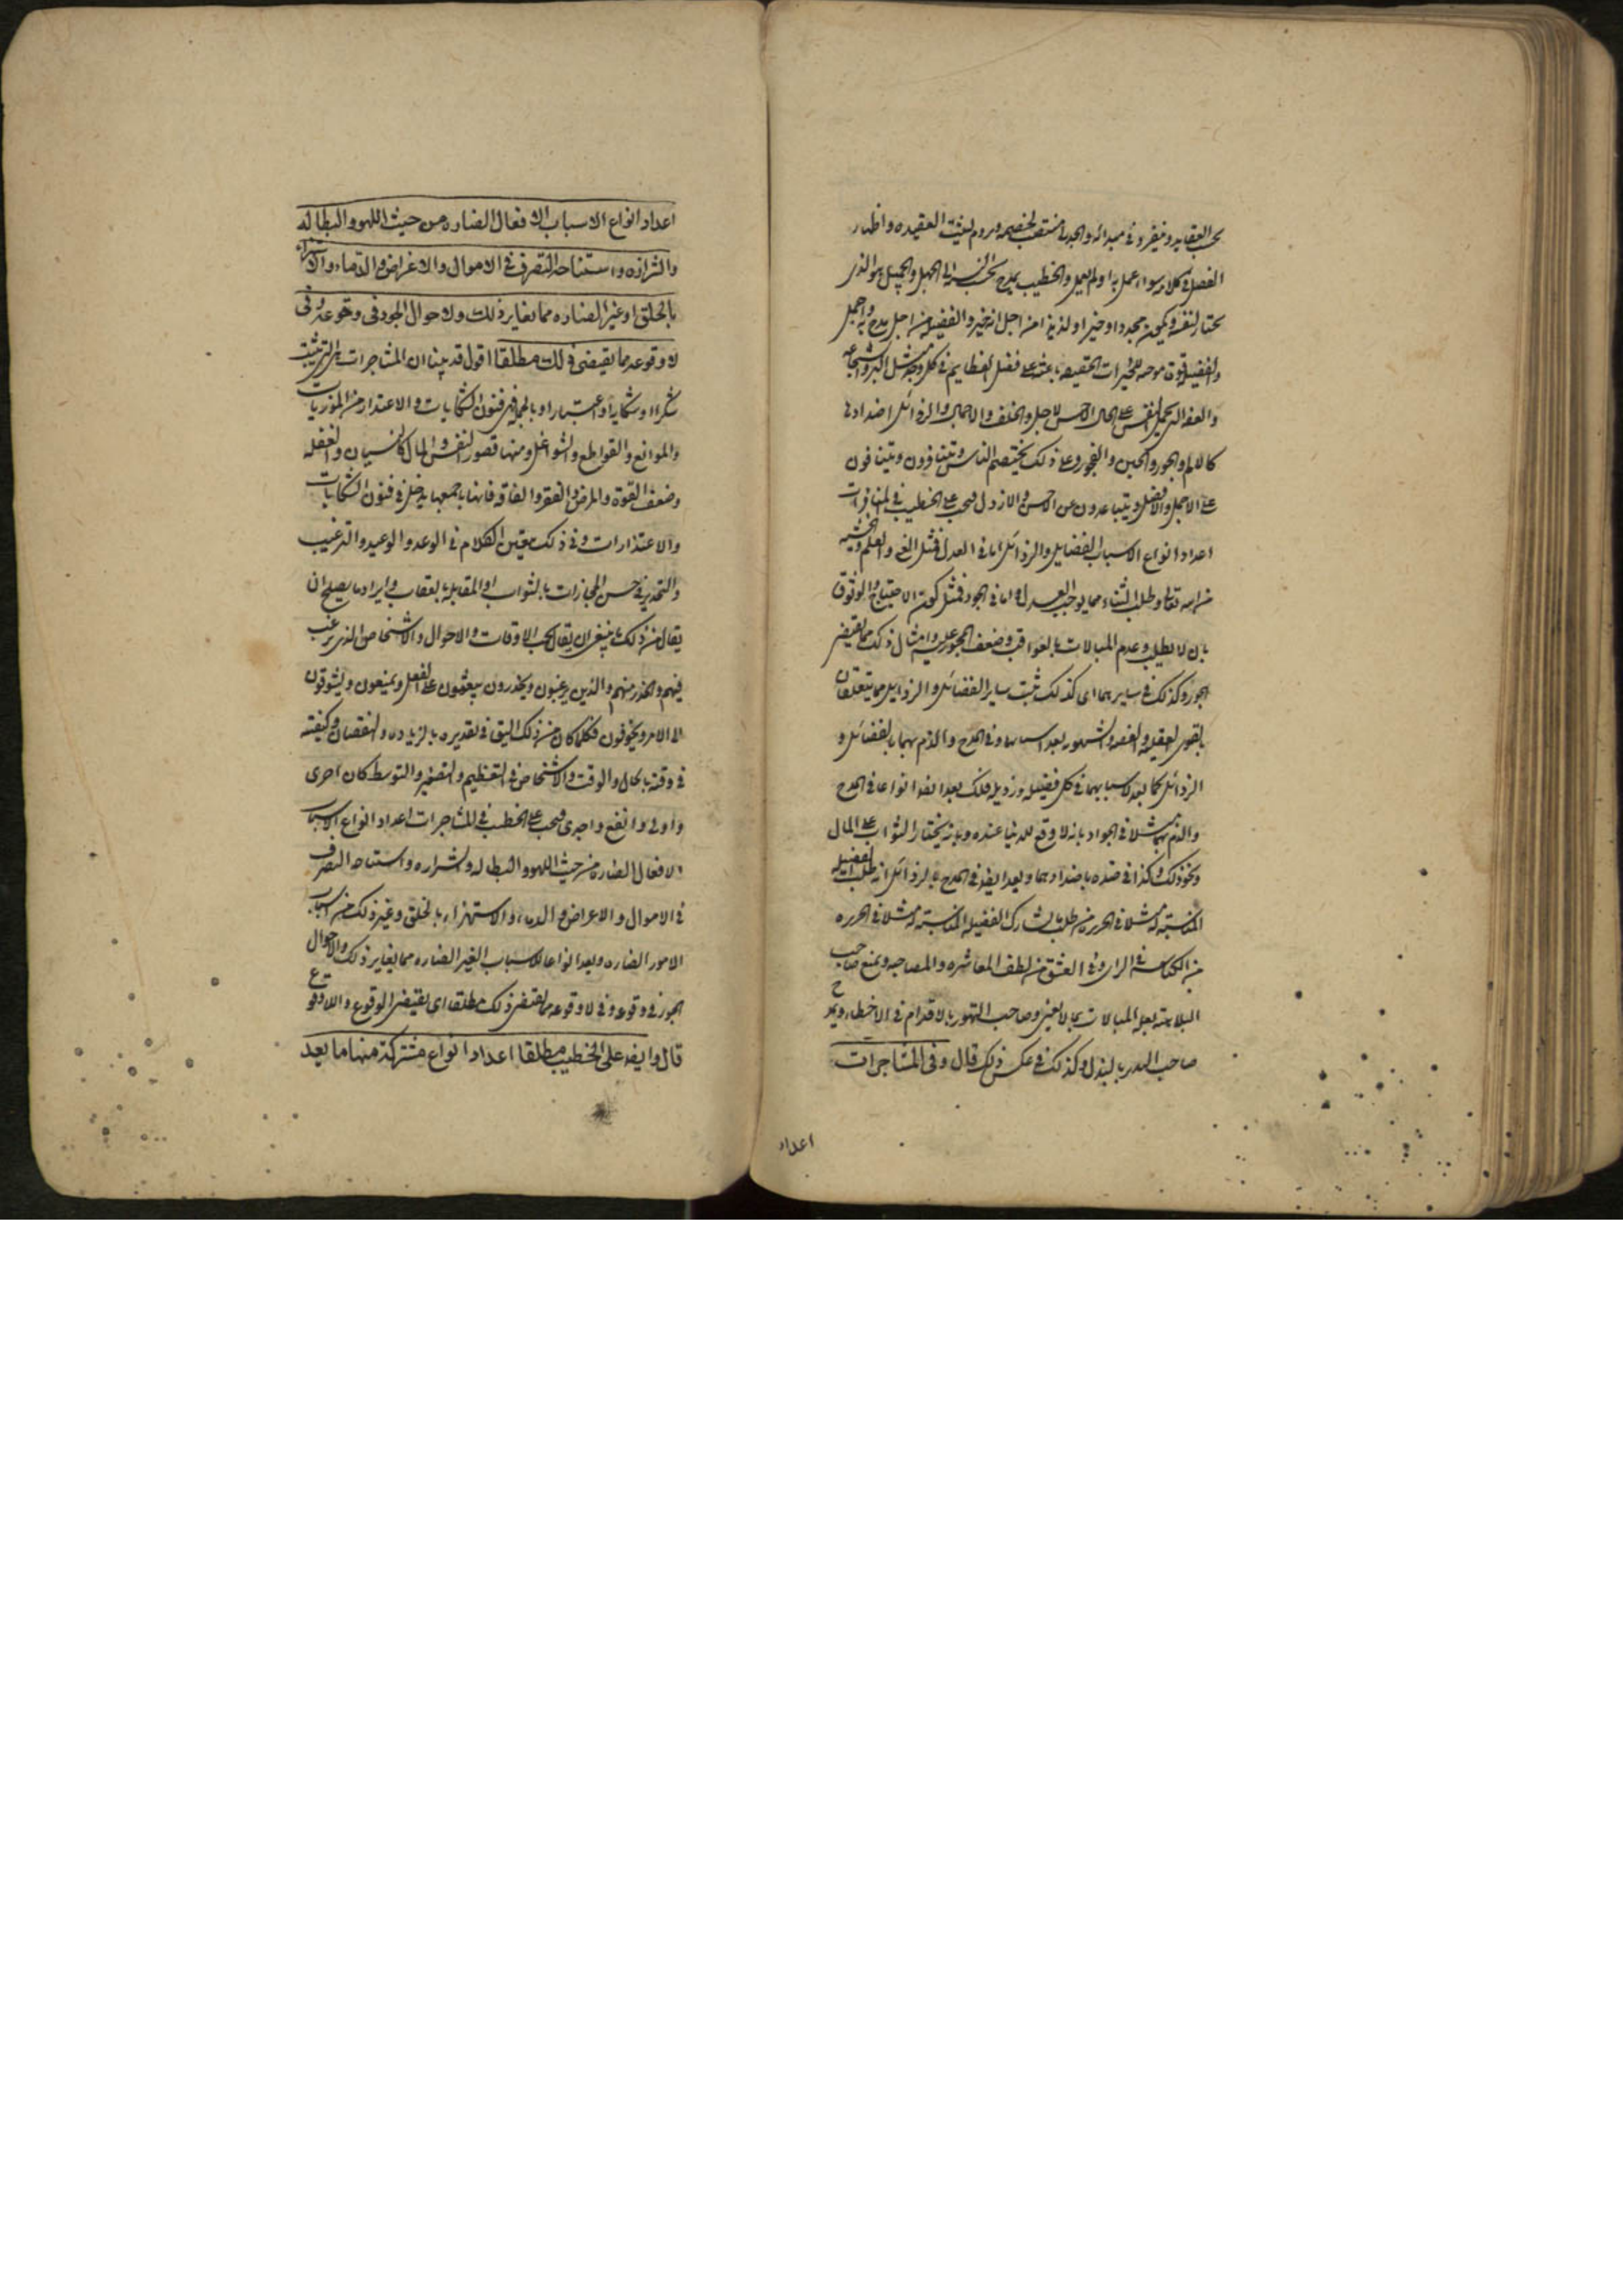 بحسب العقايد وينفرد في مبدائه والجدلي منتصب لخصمه ويروم تثبيت العقيده واظهار
الفصل في كلامه سواء عمل به او لم يعمل والخطيب يمدح بحسب النسبة الى الجهل والجميل هو الذي
يختار لنفسه ويكون ممجدا وخيرا ولذيذا من اجل انه خير والفضيله من اجل يمدح به واجمل
والفضيله قوة موجبه للخيرات الحقيقيه باعثه على فعل العظايم في كل وجه مثل البر والشجاعه
والعفه التي تحمل النفس على الحال الاحسن لاجل والخلف والاجمال والرذائل اضدادها
كالالم والجور والجبن والفجور وعلى ذلك يختصم الناس ويتنافرون ويتنافون
على الاجمل والافضل ويتباعدون عن الاخس والارذل فيجب على الخطيب في المنافرات
اعداد انواع الاسباب الفضايل والرذائل اما في العدل فمثل الغنى والعلم والخشيه
من الله تعالى وطلب الثناء مما يوجب العدل واما في الجور فمثل كونه الاحتياج والوثوق
بان لا يطلب وعدم المبالات بالعواقب وضعف المجور عليه وامثال ذلك مما يقتضى
الجور وكذلك في سايرهما اى كذلك تثبت ساير الفضائل والرذايل مما يتعلقان
بالقوى العقليه والغضبيه والشهويه بعد اسبابها وفي المدح والذم بهما بالفضائل و
الرذائل كما يعد الاسباب بهما في كل فضيله ورذيله فلك يعد ايضا انواعا في المدح
والذم بهما مثلا في الجواد بانه لا وقع للدنيا عنده وبانه يختار الثواب على المال
ونحو ذلك وكذا في ضده باضدادهما ويعد ايضا في المدح بالرذائل انه طلب الفضيله
المناسبة له مثلا في الجربزه طلب ما يشارك الفضيله المناسبة له مثلا في الجربزه
من الكياسة في الراى وفي العشق من لطف المعاشره والمصاحبه ويمنع صاحب
البلاهة بعدم المبالات بما لا يعنى وصاحب التهور بالاقدام في الاخطار ويمدح
صاحب التبذير بالبذل وكذلك في عكس ذلك قال وفي المشاجرات
اعداد
اعداد انواع الاسباب الافعال الضاره من حيث اللهو والبطاله
والشراره واستباحة التصرف في الاموال والاعراض والدماء والاستهزاء
بالخلق او غير الضاره مما يغاير ذلك ولاحوال الجور فى وقوعه وفى
لاوقوعه مما يقيضى ذلك مطلقا اقول قد بينا ان المشاجرات هى التي تثبت
شكرا او شكاية او اعتذارا وبالجمله في فنون الشكايات والاعتذار من المؤذيات
والموانع والقواطع والشواغل ومنها قصور النفس والمال كالنسيان والغفله
وضعف القوة والمرض والفقر والفاقه فانها باجمعها يدخل في فنون الشكايات
والاعتذارات وفي ذلك معين الكلام في الوعد والوعيد والترغيب
والتحذير في حسن المجازات بالثواب او المقابله بالعقاب وايراد ما يصلح ان
يقال من ذلك ما ينبغى ان يقال بحسب الاوقات والاحوال والاشخاص الذى يرغب
فيهم والحذر منهم والذين يرغبون ويحذرون يبعثون على الفعل ويمنعون ويشوقون
الى الامر ويخوفون فكلما كان من ذلك اليق في تقديره بالزياده والنقصان وكيفيته
في وقته بالحال والوقت والاشخاص في التعظيم والتصغير والتوسط كان احرى
واولى وانفع واجدى فيجب على الخطيب في المشاجرات اعداد انواع الاسباب
الافعال الضاره من حيث اللهو والبطاله والشراره واستباحه التصرف
في الاموال والاعراض والدماء والاستهزاء بالخلق وغير ذلك من اسباب
الامور الضاره ويعد انواعا للاسباب الغير الضاره مما يغاير ذلك والاحوال
الجور في وقوعه وفي لاوقوعه مما يقتضى ذلك مطلقا اى يقتضى الوقوع واللاوقوع
قال وايضا على الخطيب مطلقا اعداد انواع مشتركة منها ما يعد